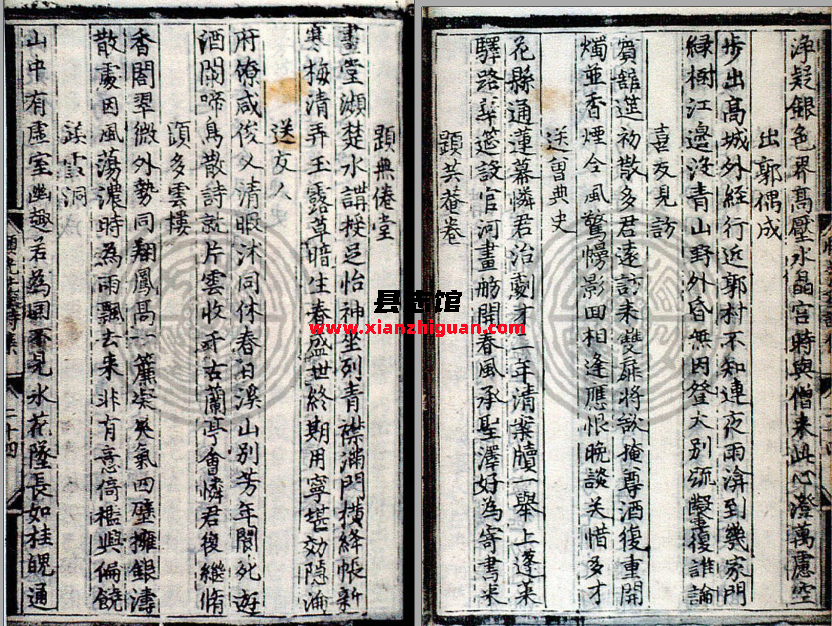 淨凝銀色界髙壓水晶宫時與僧来此心澄萬慮空
出郭偶成
步出髙城外経行近郭村不知連夜雨渰到幾家門
緑樹江邉沒青山野外昏無因登大别復誰論
喜友見訪
賓舘進初散多君遠訪来雙扉将欲掩尊酒復重開
燭並香煙合風驚幔影面相逢應恨晚談笑惜多才
送曾典史
花縣通蓮幕憐君治劇才三年清案牘一舉上蓬莱
驛路離筵設官河畫舫開春風承聖澤好為寄書来
題芙菴卷
題無倦堂
畫堂瀕楚水講授足怡神坐列青襟滿門横絳帳新
寒梅清弄玉露草暗生春盛世終期用寧堪効隱淪
送友人
府僚咸俊乂清暇沐同休春日溪山别芳年閬苑遊
酒闌啼鳥散詩就片雲收千古蘭亭會憐君復繼脩
題多雲樓
香閣翠微外勢同翔鳳髙一簾凝爽氣四壁擁銀濤
散處因風蕩濃時為雨飄去来非有意倚檻興偏饒
雲洞
山中有虚室幽趣若為同不見水花墜長如桂魄通
二十四
县志馆
www.xianzhiguan.com